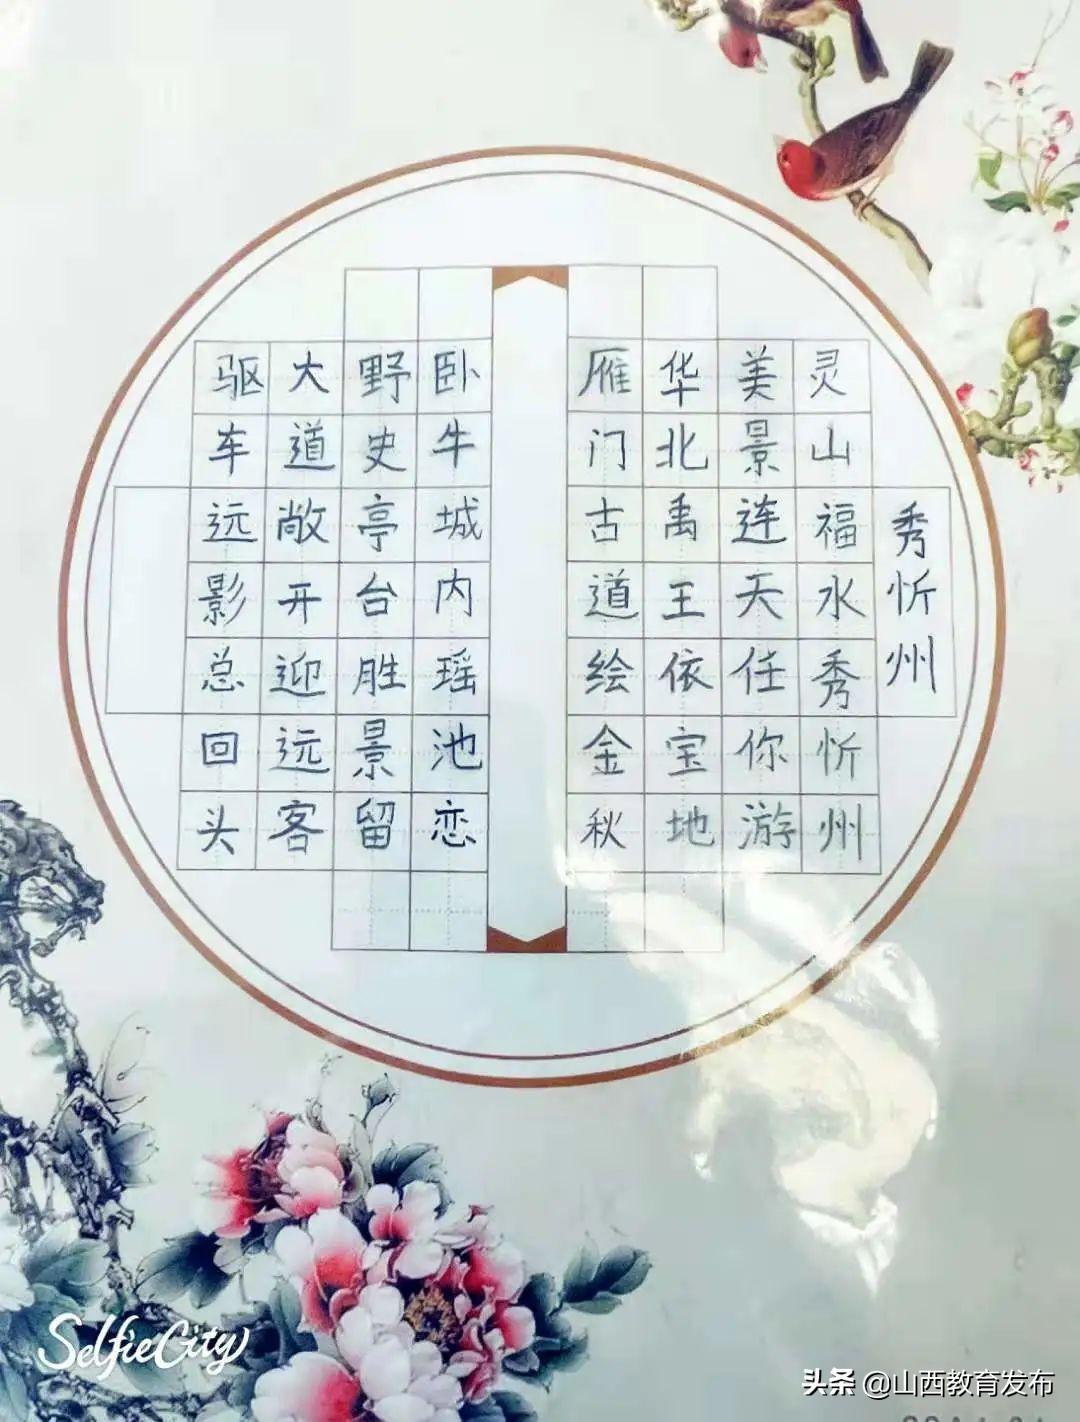 秀忻州
灵山福水秀忻州
美景连天任你游
华北禹王依宝地
雁门古道绘金秋
卧牛城内瑶池恋
野史亭台胜景留
大道敞开迎远客
驱车远影总回头
SelfieCity
头条 @山西教育发布